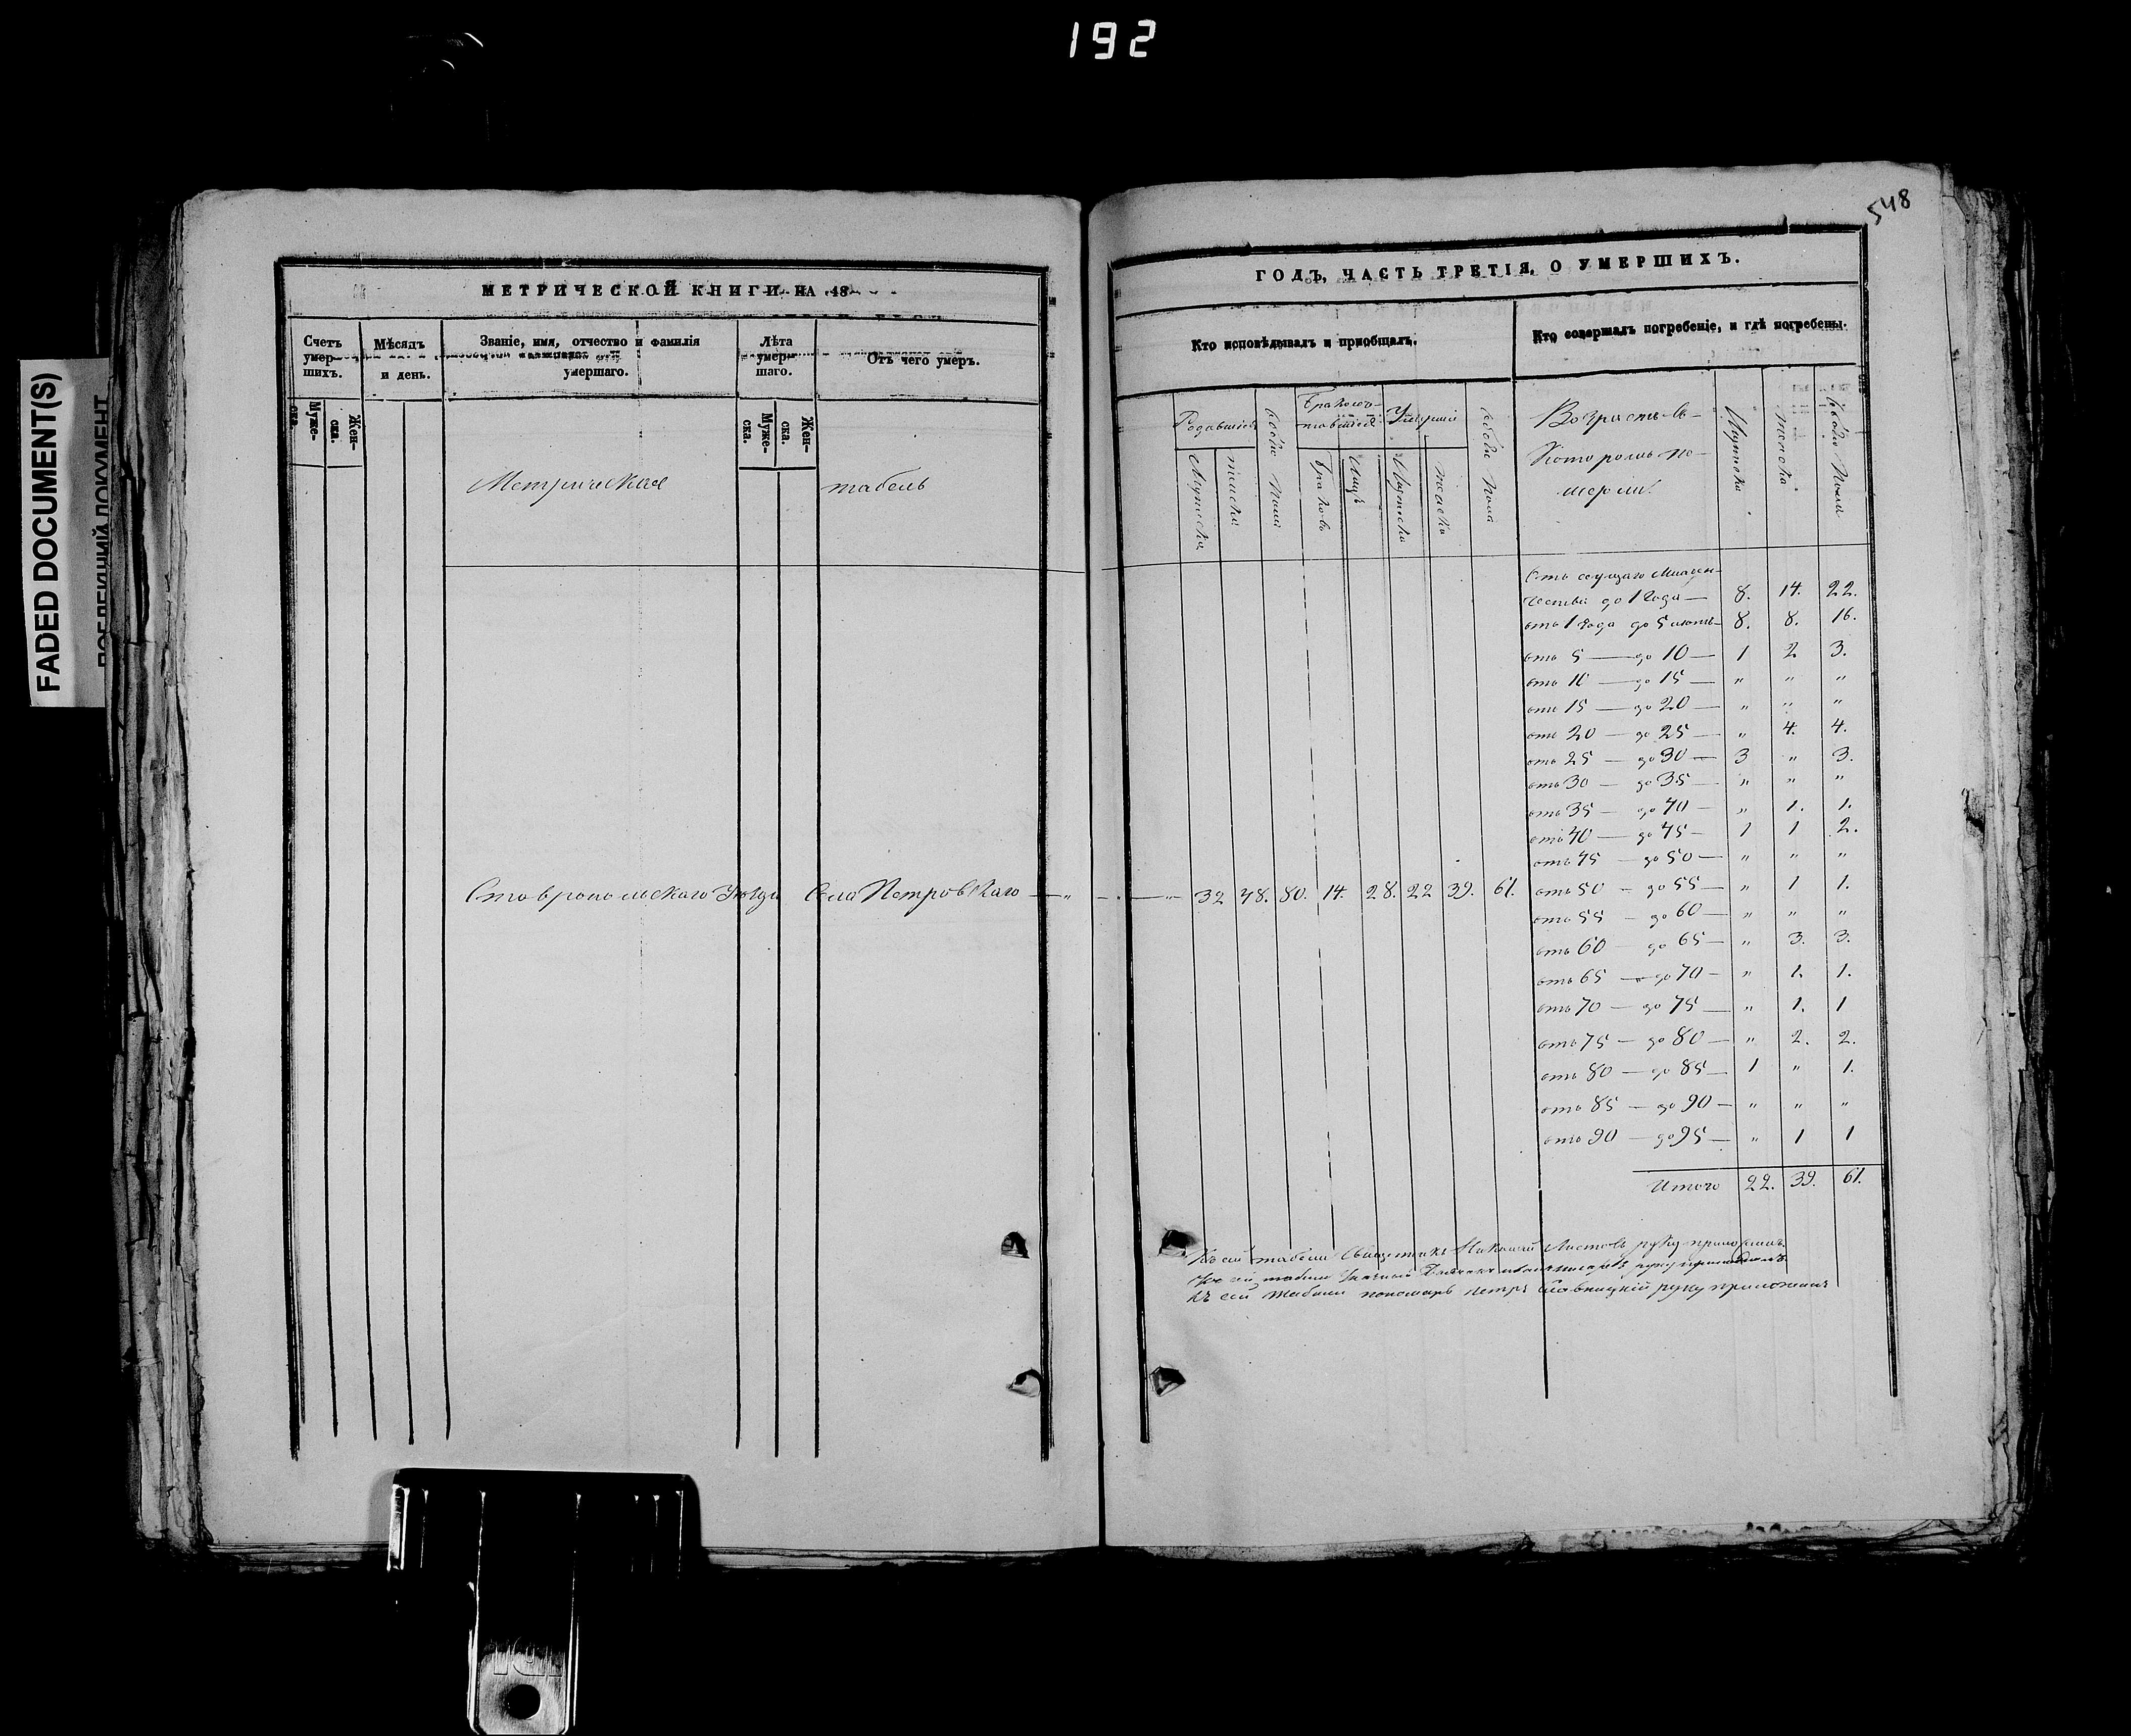 192
548
FADED DOCUMENT(S)
МЕТРИЧЕСКОЙ КНИГИ НА 48
Счетъ умер- шихъ.
Мѣсяцъ и день.
Званіе, имя, отчество и фамилія умершаго.
Лѣта умер- шаго.
Отъ чего умеръ.
Муже- ска.
Жен- ска.
Муже- ска.
Жен- ска.
Метрическая табель
Ставропольскаго Уѣзда Села Петровскаго — „
ГОДЪ, ЧАСТЬ ТРЕТІЯ, О УМЕРШИХЪ.
Кто исповѣдывалъ и пріобщалъ.
Кто совершалъ погребеніе, и гдѣ погребены.
Родившіеся
Мужеска
женска
обоего пола
Бракосо- ставшіеся
Браковъ
Лицъ
Умершіе
Мужеска
женска
обоего пола
Возрастъ въ
Которомъ по-
мерли.
Мужеска
женска
обоего пола
„ 32 48. 80. 14. 28. 22 39. 61.
Отъ сущаго младен-
чества до 1 года — 8. 14. 22.
отъ 1 года до 5 лѣтъ — 8. 8. 16.
отъ 5 — до 10 — 1 2 3.
отъ 10 — до 15 — „ „ „
отъ 15 — до 20 — „ „ „
отъ 20 — до 25 — „ 4. 4.
отъ 25 — до 30 — 3 „ 3.
отъ 30 — до 35 — „ „ „
отъ 35 — до 40 — „ 1. 1.
отъ 40 — до 45 — 1 1 2.
отъ 45 — до 50 — „ „ „
отъ 50 — до 55 — „ 1 1.
отъ 55 — до 60 — „ „ „
отъ 60 — до 65 — „ 3. 3.
отъ 65 — до 70 — „ 1. 1.
отъ 70 — до 75 — „ 1. 1
отъ 75 — до 80 — „ 2. 2.
отъ 80 — до 85 — 1 „ 1.
отъ 85 — до 90 — „ „ „
отъ 90 — до 95 — „ 1 1
Итого 22. 39. 61.
Къ сей табели Священникъ Николай руку приложилъ
сей табели руку приложилъ
Къ сей табели пономарь Петръ руку приложилъ